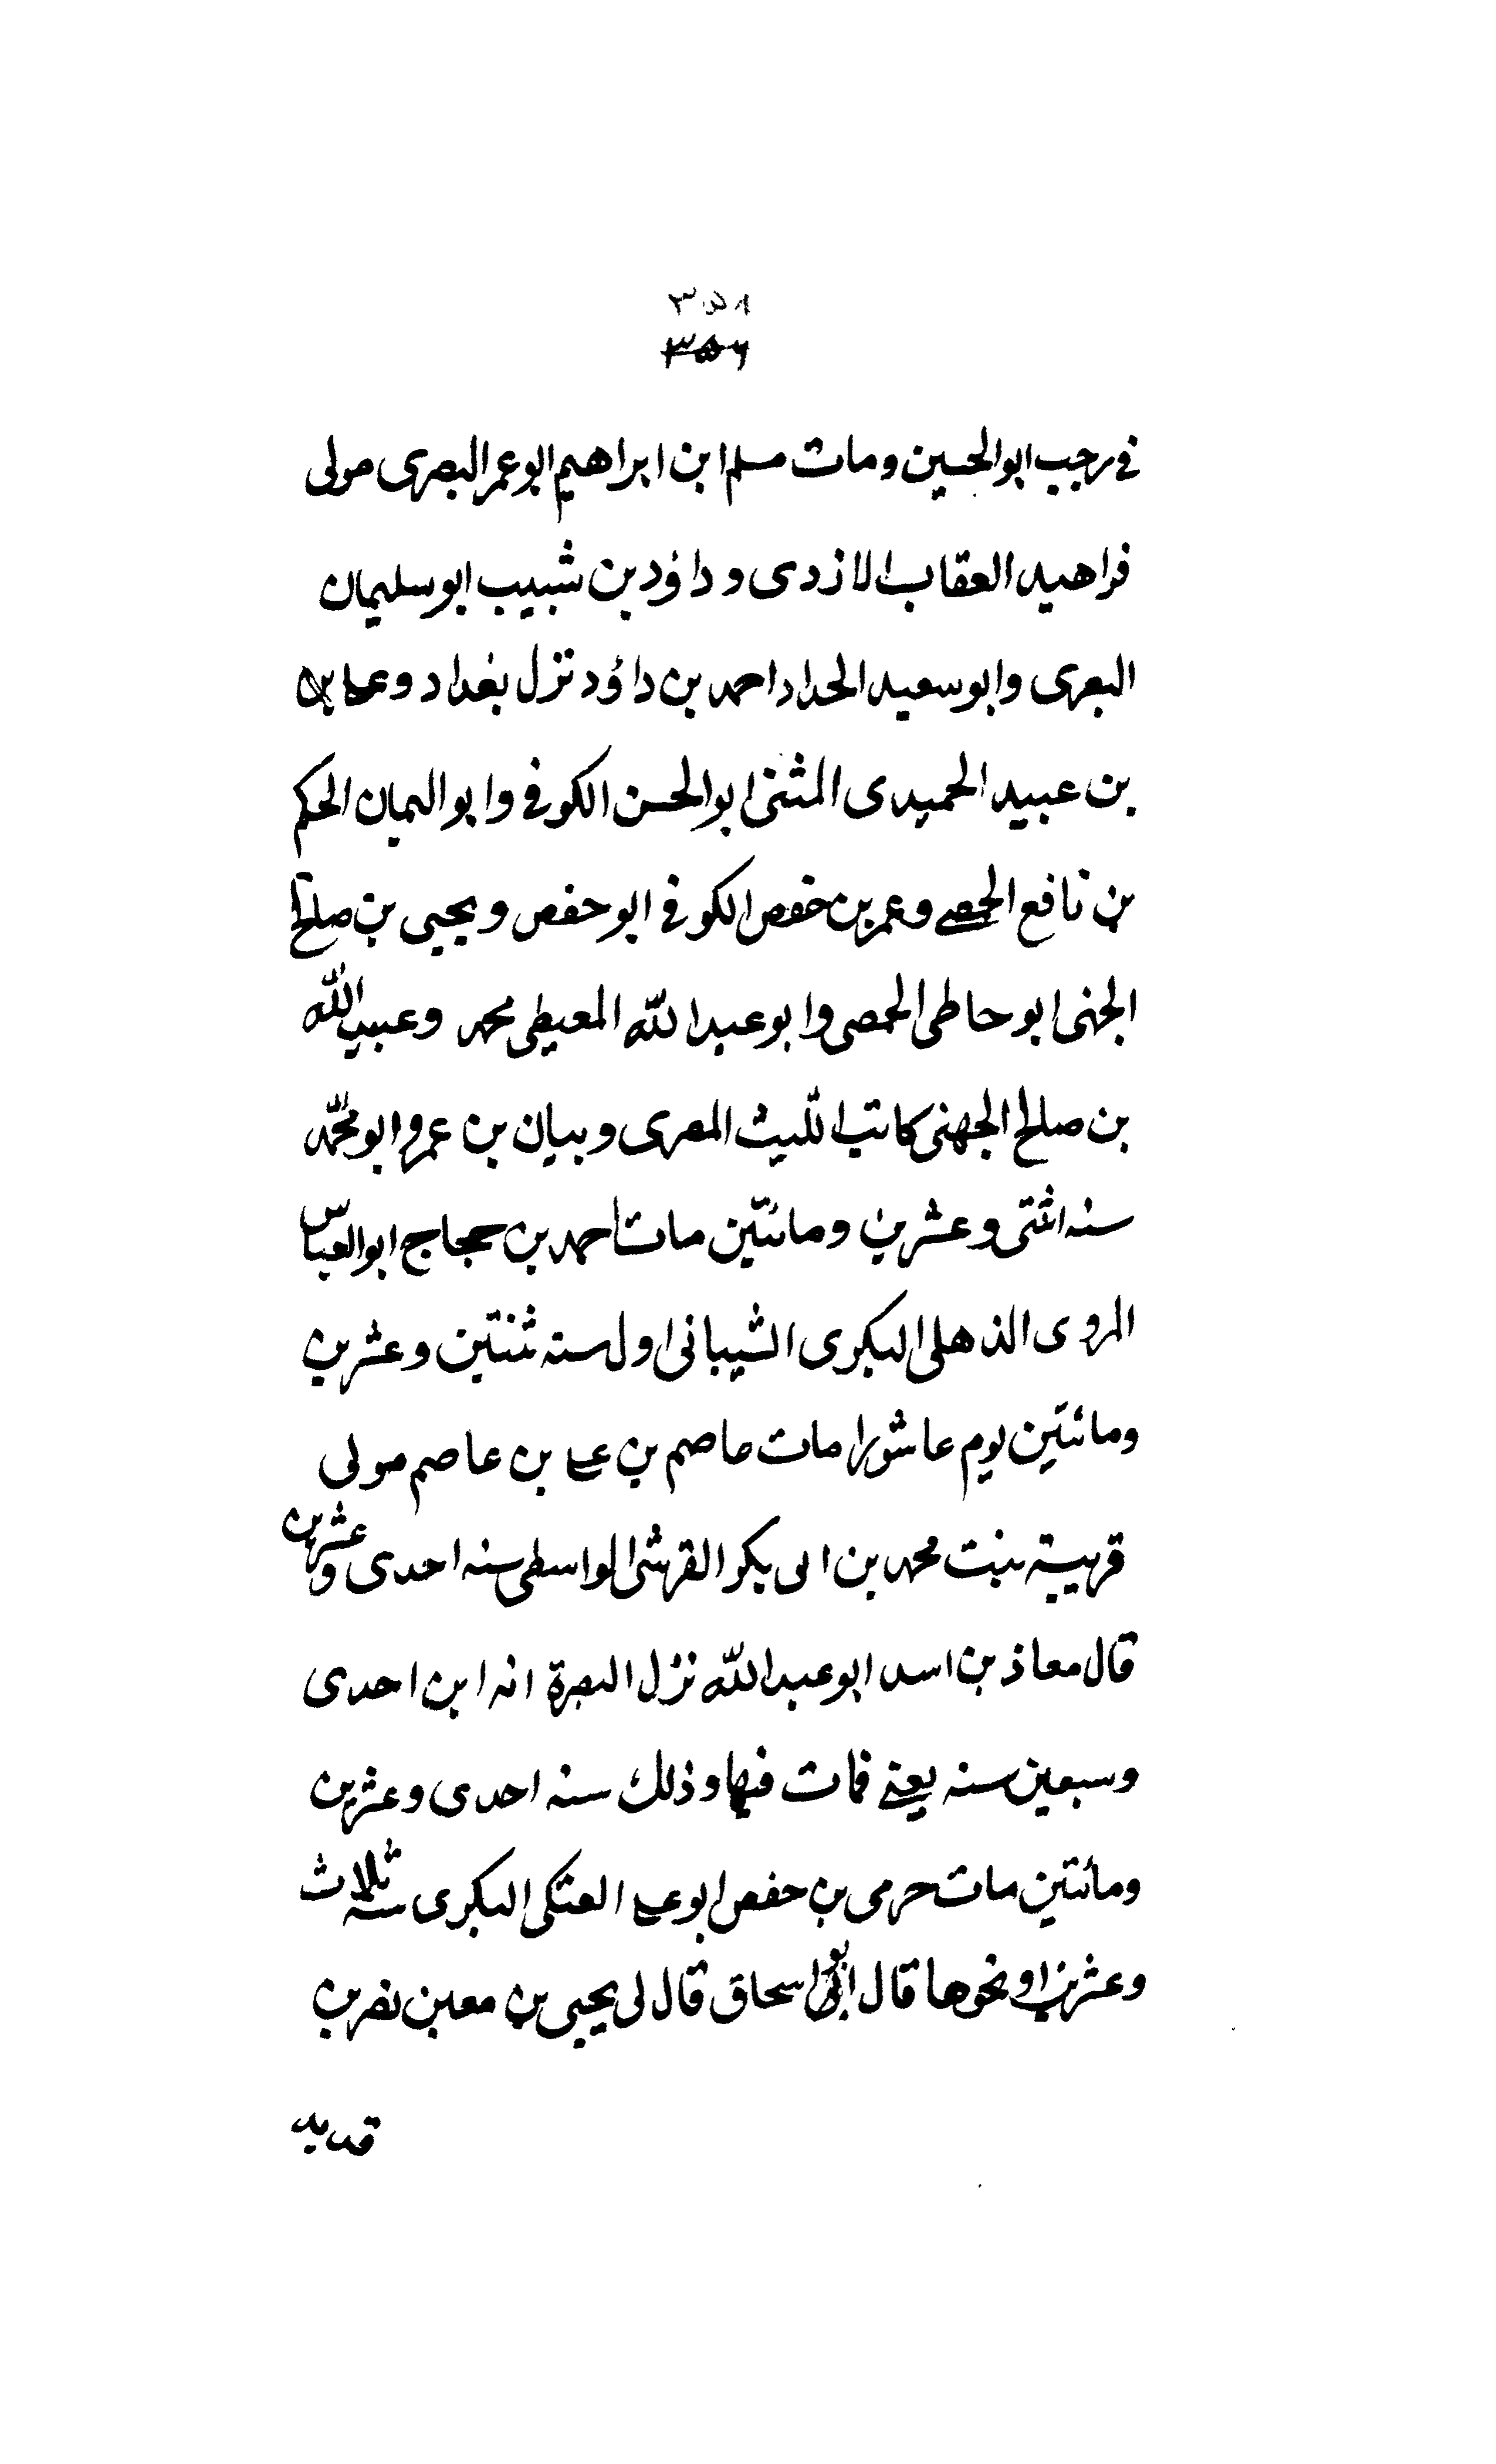 ٣٥٨
٣٥٦
في رجب ابو الحسين ومات مسلم ابن ابراهيم ابو عمر البصرى مولى
فراهيد العقاب الازدى و داؤد بن شبيب ابو سليمان
البصرى وابو سعيد الحداد احمد بن داؤد نزل بغداد وعلى بن
بن عبيد الحميدى المثنى ابو الحسن الكوفى وابو اليمان الحكم
بن نافع الحمصى وعمر بن حفص الكوفى ابو حفص ويحيى بن صالح
الجهنى ابو حاطى الحمصى وابو عبد الله المعيطى محمد وعبيد الله
بن صالح الجهنى كاتب الليث المصرى وبيان بن عمرو ابو محمد
سنه اثنتى وعشرين ومائتين مات احمد بن حجاج ابو العباس
المروى الذهلى البكرى الشيبانى اول سنه ثنتين وعشرين
ومائتين يوم عاشورا مات عاصم بن على بن عاصم مولى
قريبة بنت محمد بن ابى بكر القرشى الواسطى سنه احدى وعشرين
قال معاذ بن اسد ابو عبد الله نزل البصرة انه ابن احدى
وسبعين سنه يعنى فمات فيها وذلك سنه احدى وعشرين
ومائتين مات حرمى بن حفص ابو على العتكى البكرى سنه ثلاث
وعشرين او نحوها قال ابو اسحاق قال لى يحيى بن معين نصر بن
قديد